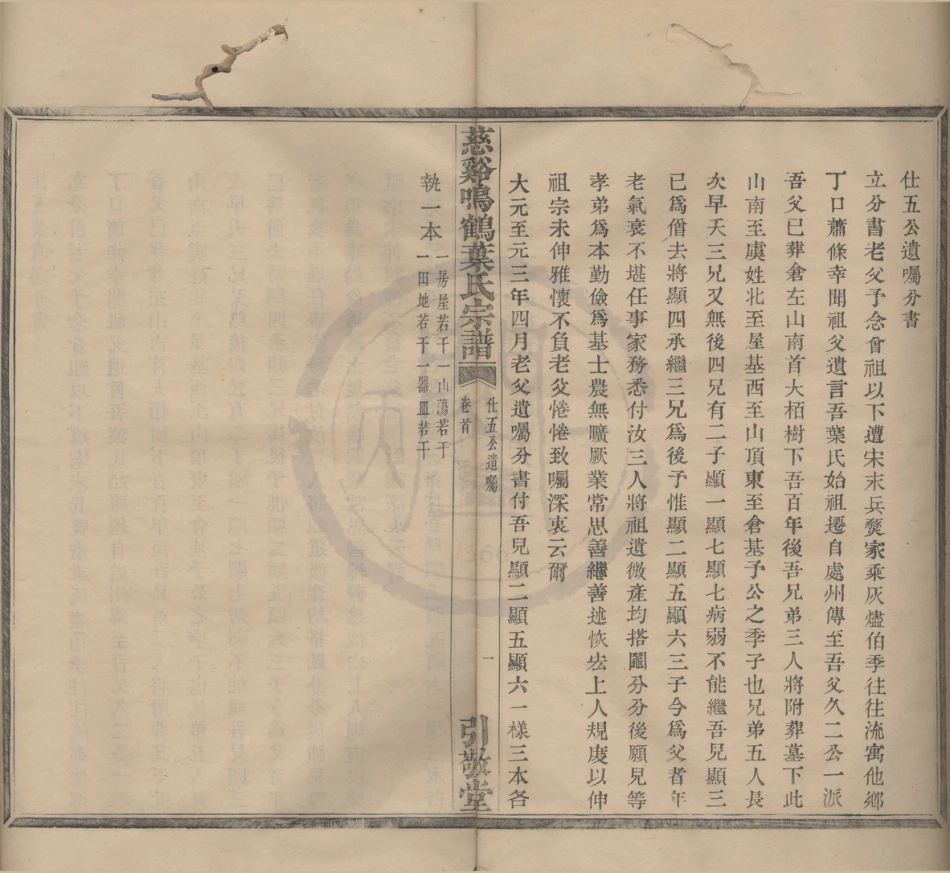 仕五公遺囑分書
立分書老父子念曾祖以下遭宋末兵燹家乘灰燼伯季往往流寓他鄉
丁口蕭條幸聞祖父遺言吾葉氏始祖遷自處州傳至吾父久二公一派
吾父已葬倉左山南首大栢樹下吾百年後吾兄弟三人將附葬墓下此
山南至虞姓北至屋基西至山頂東至倉基予公之季子也兄弟五人長
次早夭三兄又無後四兄有二子顯一顯七顯七病弱不能繼吾兄顯三
已爲僧去將顯四承繼三兄爲後予惟顯二顯五顯六三子今爲父者年
老氣衰不堪任事家務悉付汝三人將祖遺微產均搭鬮分分後願兄等
孝弟爲本勤儉爲基士農無曠厥業常思善繼善述恢宏上人規度以伸
祖宗未伸雅懷不負老父惓惓致囑深衷云爾
大元至元三年四月老父遺囑分書付吾兒顯二顯五顯六一樣三本各
慈谿鳴鶴葉氏宗譜
卷首
仕五公遺囑
一
引敬堂
執一本
一房屋若干一山蕩若干
一田地若干一器皿若干